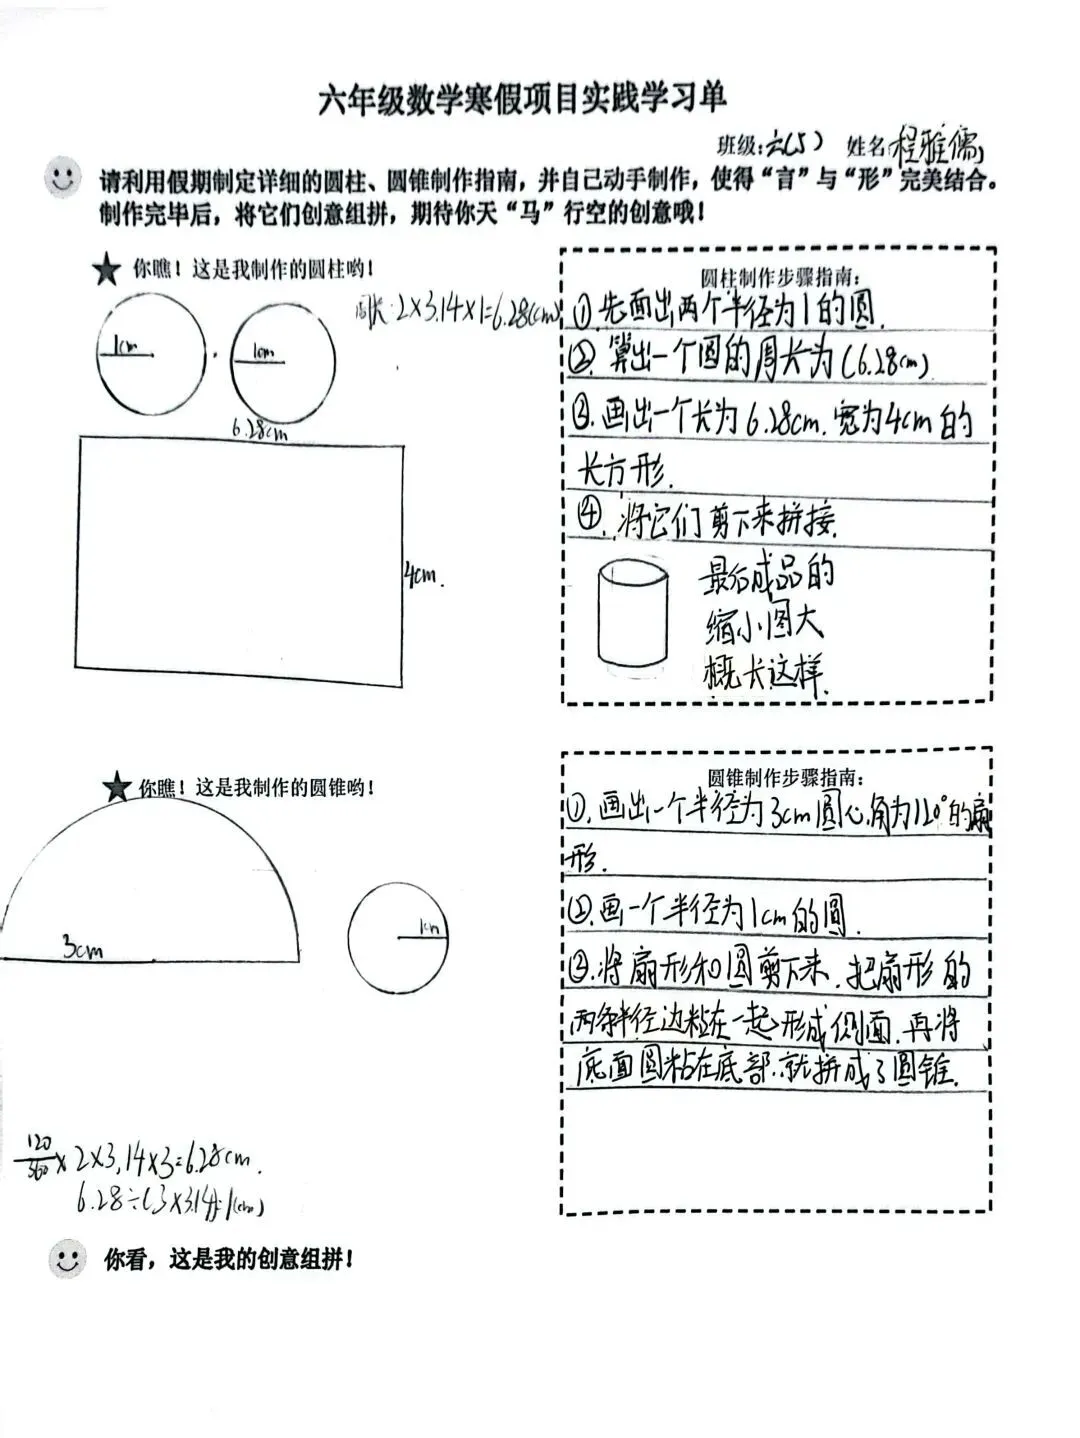 六年级数学寒假项目实践学习单
班级:六(5) 姓名:程雅儒
请利用假期制定详细的圆柱、圆锥制作指南，并自己动手制作，使得“言”与“形”完美结合。
制作完毕后，将它们创意组拼，期待你天“马”行空的创意哦！
你瞧！这是我制作的圆柱哟！
周长:2×3.14×1=6.28(cm)
1cm
1cm
6.28cm
4cm.
圆柱制作步骤指南：
①先画出两个半径为1的圆.
②.算出一个圆的周长为(6.28cm)
③.画出一个长为6.28cm.宽为4cm的
长方形.
④.将它们剪下来拼接.
最后成品的
缩小图大
概长这样.
你瞧！这是我制作的圆锥哟！
3cm
1cm
120/360×2×3.14×3=6.28cm.
圆锥制作步骤指南：
①.画出一个半径为3cm圆心角为120°的扇
形.
②.画一个半径为1cm的圆.
③.将扇形和圆剪下来.把扇形的
两条半径边粘在一起形成侧面.再将
底面圆粘在底部.就拼成了圆锥.
你看，这是我的创意组拼！